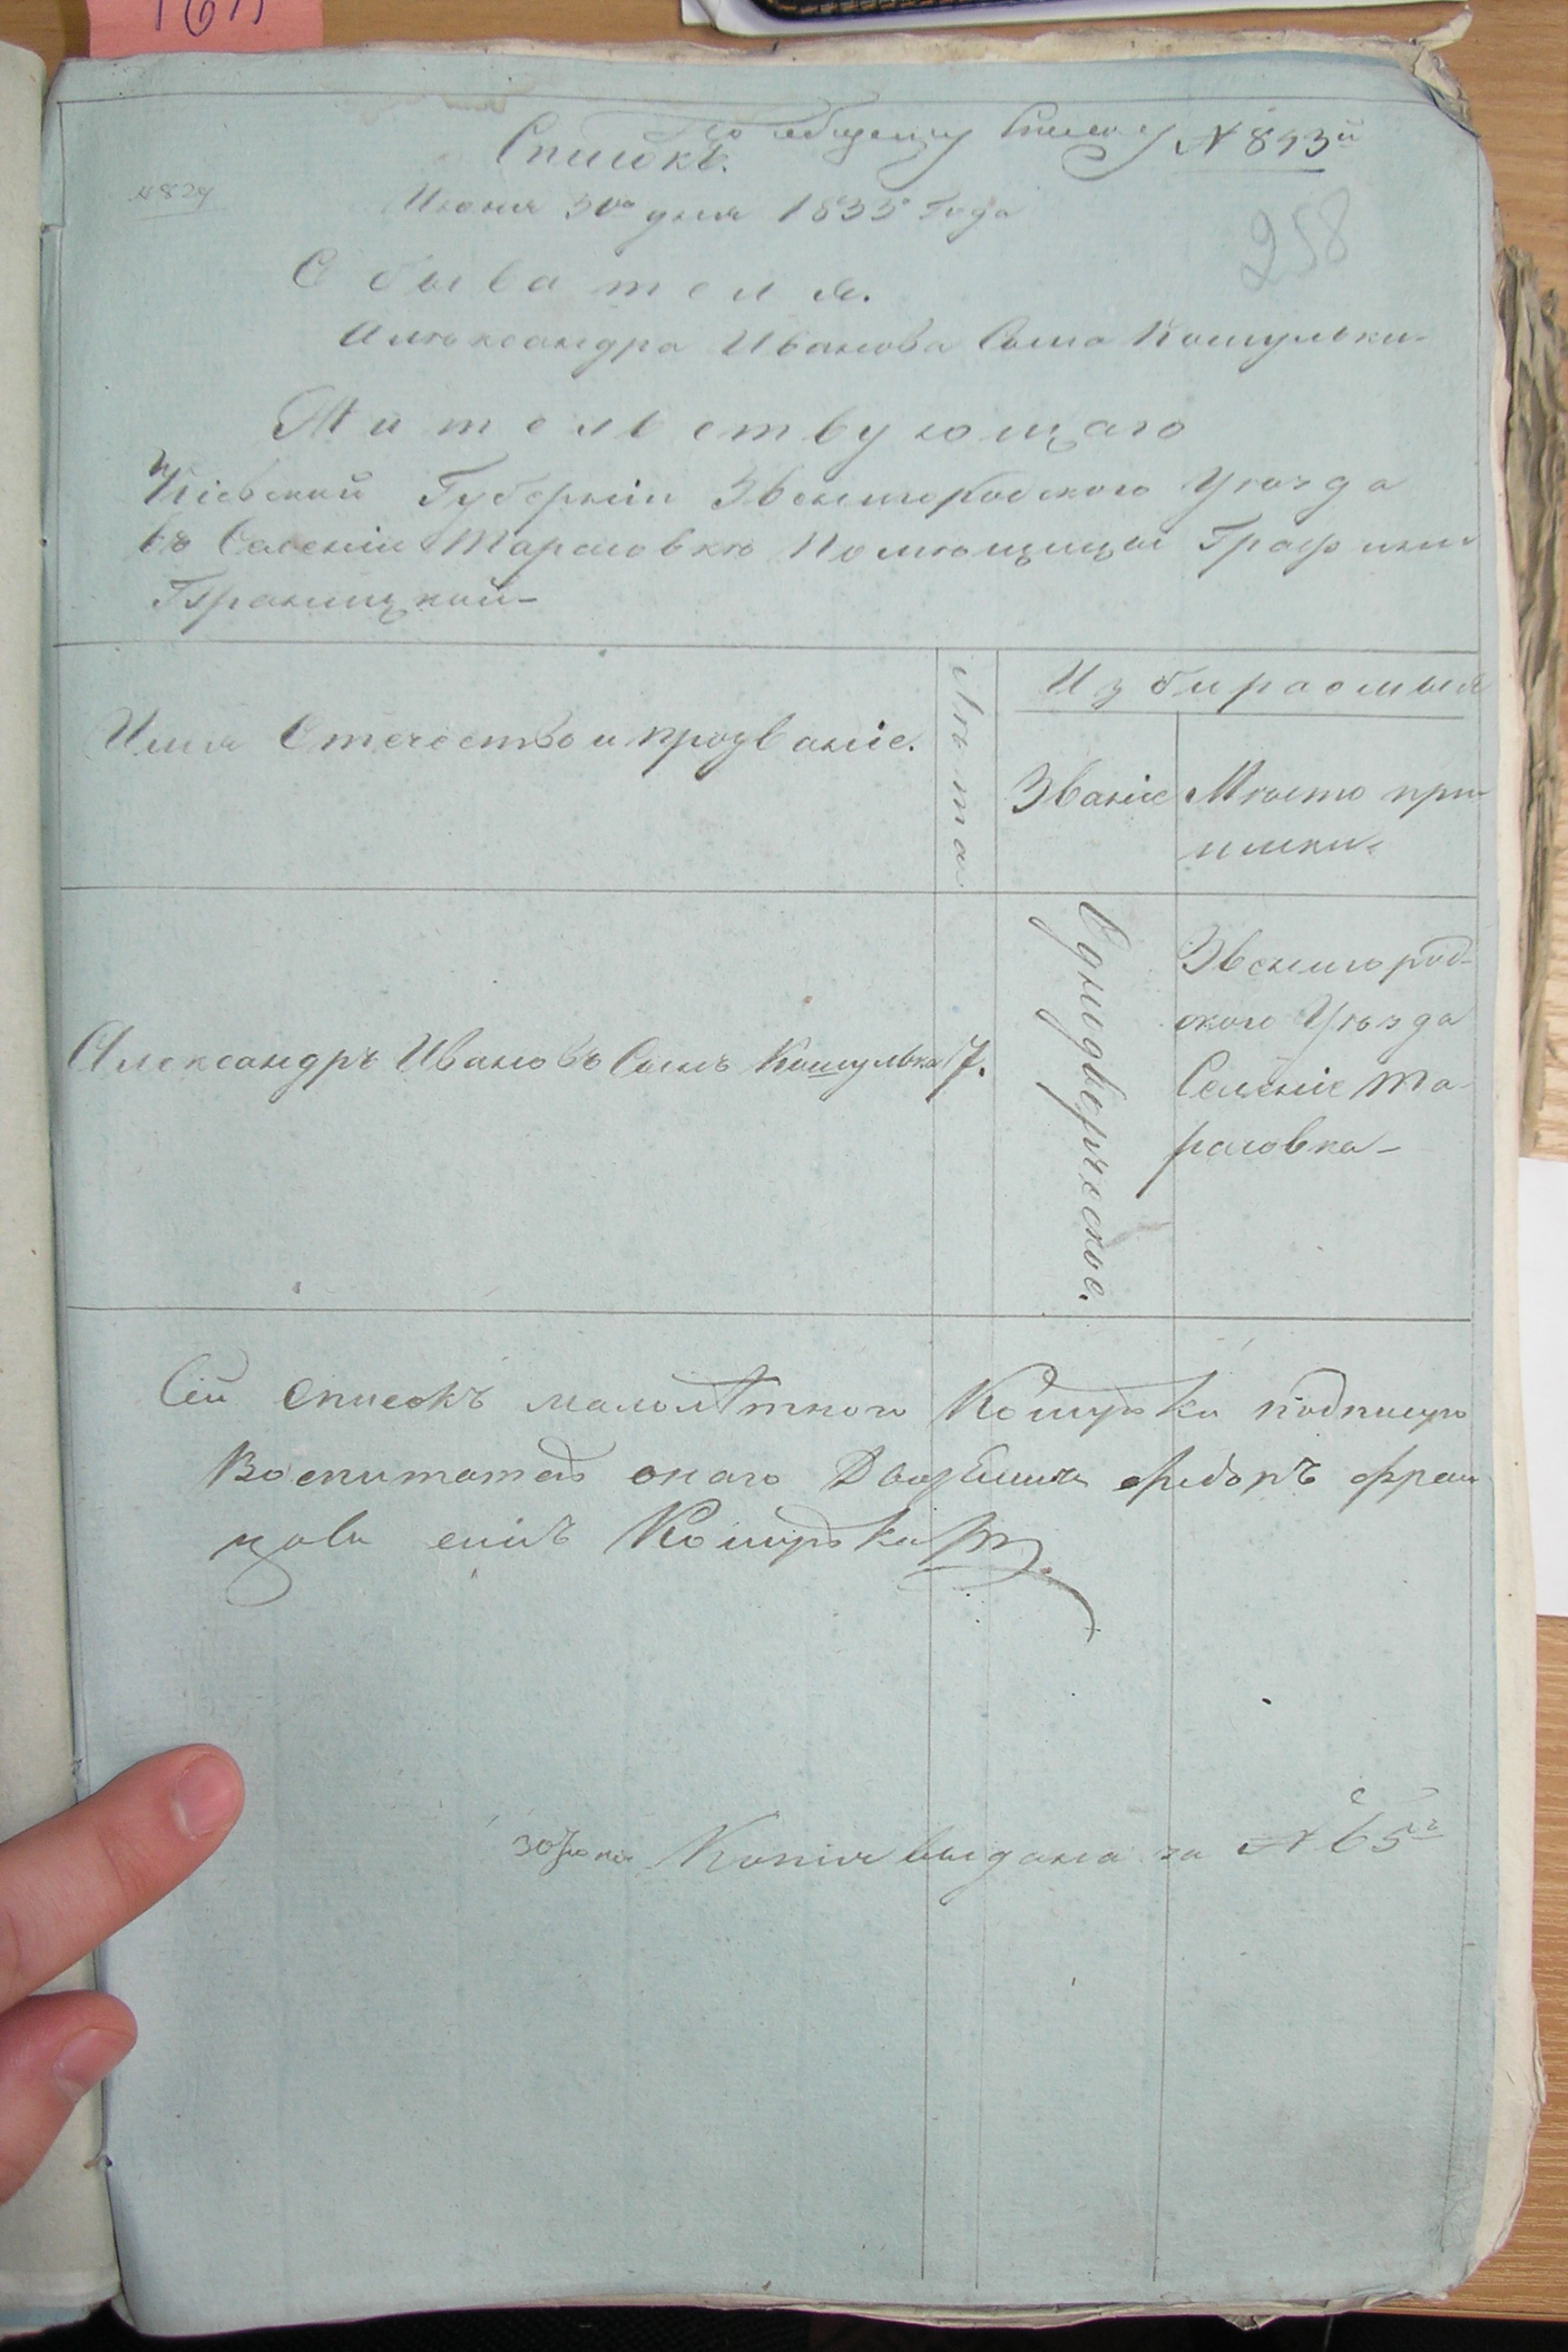 По общему Списку № 843й
Списокъ.
№ 824
Июня 30го дня 1833 года
258
Обывателя.
Алѣксандра Иванова Сына Кошульки-
Жительствующаго
Кіевской Губерніи Звенигородского Уѣзда
въ Селеніи Тарасовкѣ Помѣщицы Графини
Браницкой-
Имя Отечество и прозваніе.
Лѣта
Избираемыя
Званіе
Мѣсто при-
писки.
Александръ Ивановъ Сынъ Кошулька
17.
Однодворческое.
Звенигород-
ского Уѣзда
Селеніе Та-
расовка-
Сей списокъ малолѣтного Кошулька подписую
Воспитатель онаго Федоръ Фран
цовъ синъ Кошулька
30 Июня Копія выдана за № 65